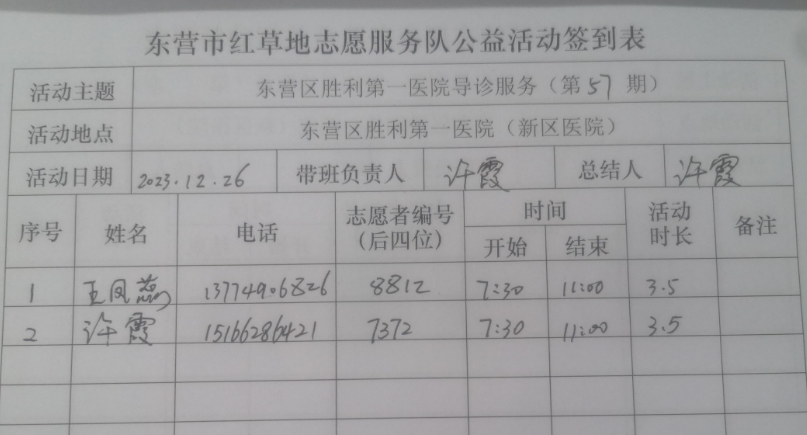 东营市红草地志愿服务队公益活动签到表
活动主题 东营区胜利第一医院导诊服务（第57期）
活动地点 东营区胜利第一医院（新区医院）
活动日期 2023.12.26 带班负责人 许霞 总结人 许霞
序号 姓名 电话 志愿者编号（后四位） 时间 开始 结束 活动时长 备注
1 王凤 13774906826 8812 7:30 11:00 3.5
2 许霞 15166286421 7372 7:30 11:00 3.5